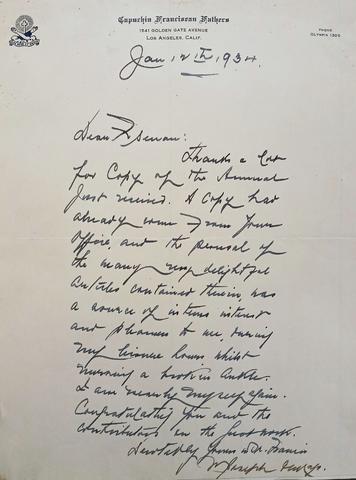 Capuchin Franciscan Fathers
1541 GOLDEN GATE AVENUE
LOS ANGELES, CALIF.
PHONE
OLYMPIA 1305
Jan 12th 1934.
Dear
Thanks a lot
for Copy of the Annual
Just received. A Copy had
already come from your
Office, and the perusal of
the many very delightful
Articles contained therein, was
a source of intense interest
and pleasure to me, during
my leisure hours, whilst
nursing a broken Ankle.
I am nearly myself again.
Congratulating you and the
contributors on the good work.
Devotedly yours in St. Francis
Joseph